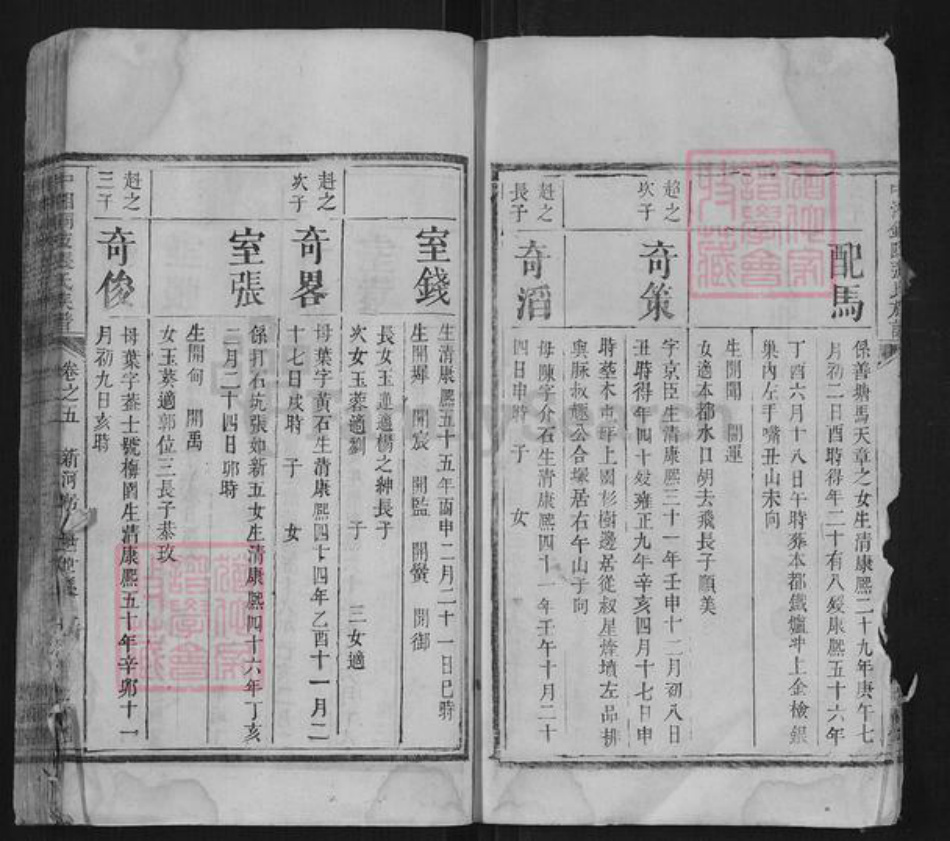 配馬
係善塘馬天章之女生清康熙二十九年庚午七
月初二日酉時得年二十有八歿康熙五十六年
丁酉六月十八日午時葬本都鐵爐冲上金檢銀
巢內左手嘴丑山未向
生開閣 開運
女適本都水口胡去飛長子順美
趨之次子
奇策
字京臣生清康熙三十一年壬申十二月初八日
丑時得年四十歿雍正九年辛亥四月十七日申
時葬木市坪上園杉樹邊居從叔星煒墳左品排
與脉叔 公合塚居右午山子向
赳之長子
奇滔
母陳字介石生清康熙四十一年壬午十月二十
四日申時 子 女
室錢
生清康熙五十五年丙申二月二十一日巳時
生開墀 開宸 開監 開黌 開御
長女玉蓮適楊之紳長子
次女玉蓉適劉 子 三女適
赳之次子
奇畧
母葉字黃石生清康熙四十四年乙酉十一月二
十七日戌時 子 女
室張
係打石坑張如新五女生清康熙四十六年丁亥
二月二十四日卯時
生開甸 開禹
女玉葵適郭位三長子泰玫
赳之三子
奇俊
母葉字蓋士號梅園生清康熙五十年辛卯十一
月初九日亥時
氏族譜 卷之五 新河房